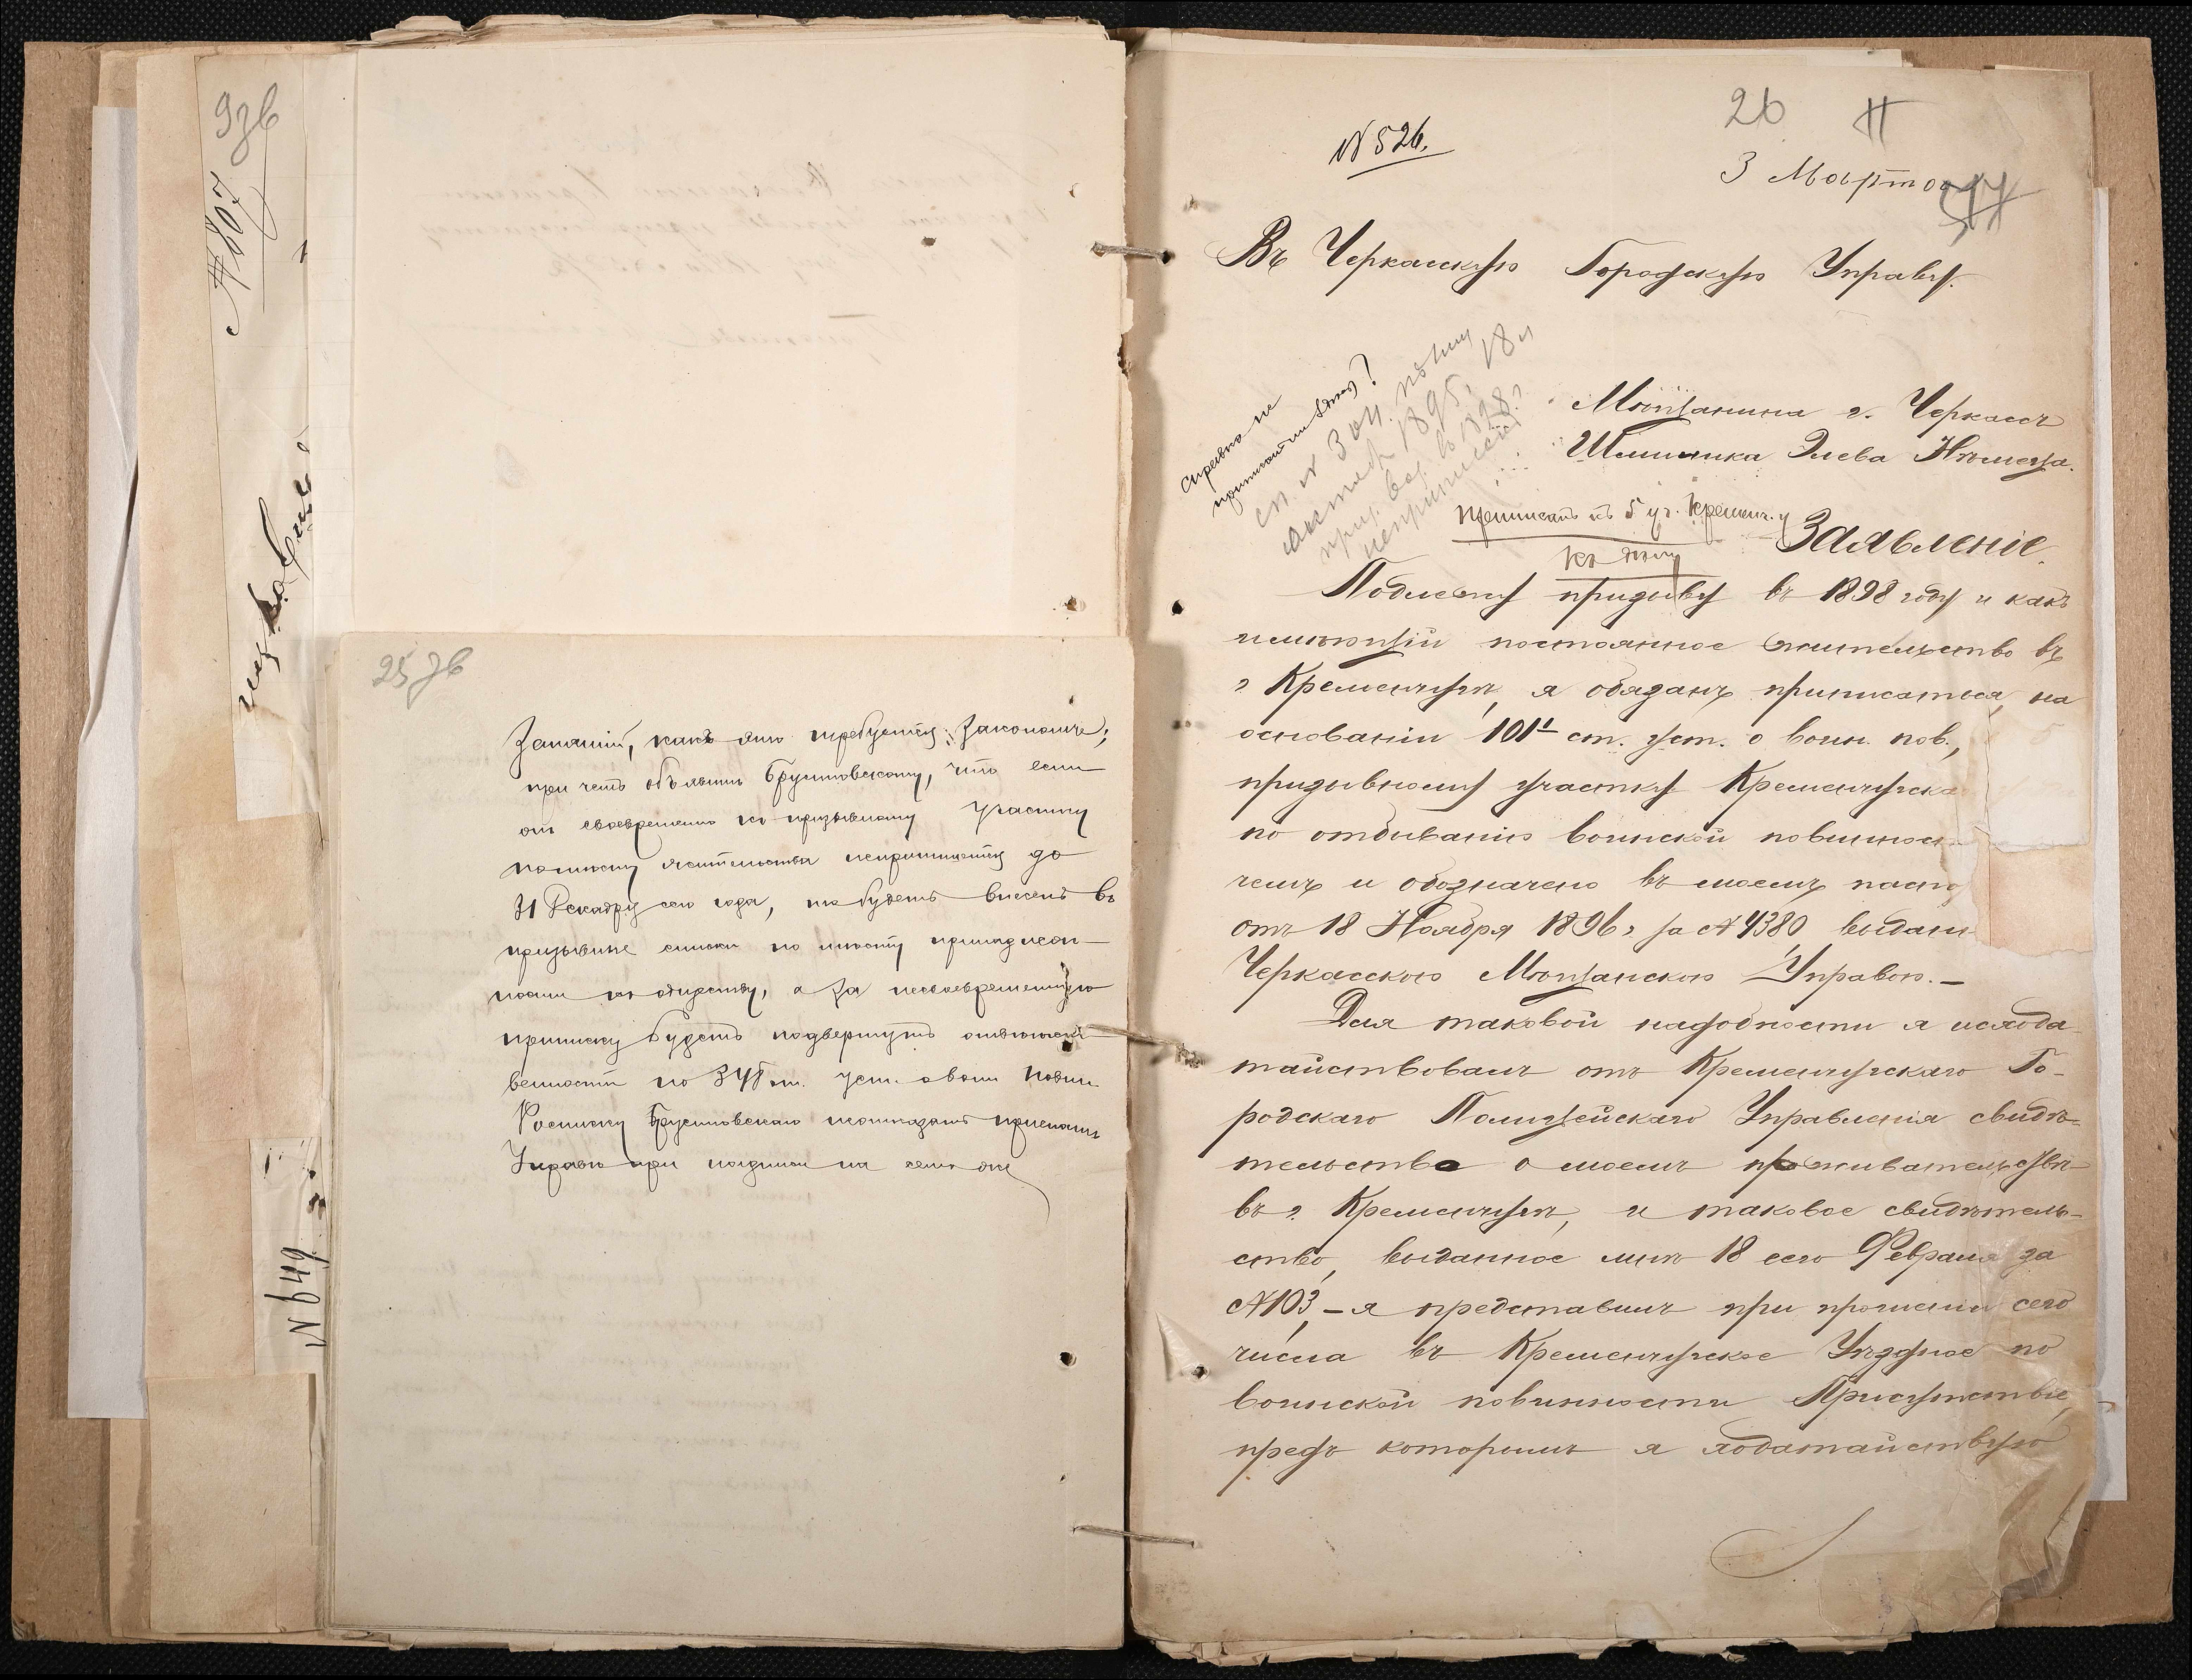 93б
№ 807
№ 649
25 зв
Запасій, какъ это требуется Закономъ;
при чемъ объявить Брустовскому, что если
онъ своевременно къ призывному участку
по мѣсту жительства неприпишется до
31 Декабря сего года, то будетъ внесенъ въ
призывные списки по мѣсту принадлеж-
ности къ обществу, а за несвоевременную
приписку будетъ подвергнутъ ответст-
венности по ст. Уст. о воин. Повин.
Росписку Брустовскаго прислать
Управѣ при надписи на семъ же
26
№ 526.
3 Марта
Въ Черкасскую Городскую Управу.
Мѣщанина г. Черкассъ
Шлиомка Элева Нѣмеца.
Справка не
приписанъ ли
сп. № 3
1895, 18
въ 1898 г
неприписанъ
приписанъ къ 5 уч. Кременч. у
къ дѣлу
Заявленіе.
Подлежу призыву въ 1898 году и какъ
имѣющій постоянное жительство въ
г Кременчугѣ, я обязанъ приписаться, на
основаніи 101 ст. уст. о воин. пов.,
призывному участку Кременчугска
по отбыванію воинской повиннос
чемъ и обозначено въ моемъ пасп
отъ 18 Ноября 1896 г за № 4380 выдан
Черкасскою Мѣщанскою Управою. —
Для таковой надобности я исхода-
тайствовалъ отъ Кременчугскаго Го-
родскаго Полицейскаго Управленія свидѣ-
тельство о моемъ проживательствѣ
въ г. Кременчугѣ, и таковое свидѣтель-
ство, выданное мнѣ 18 сего Февраля за
№ 103, — я представилъ при прошеніи сего
числа въ Кременчугское Уѣздное по
воинской повинности Присутствіе,
предъ которымъ я ходатайствую